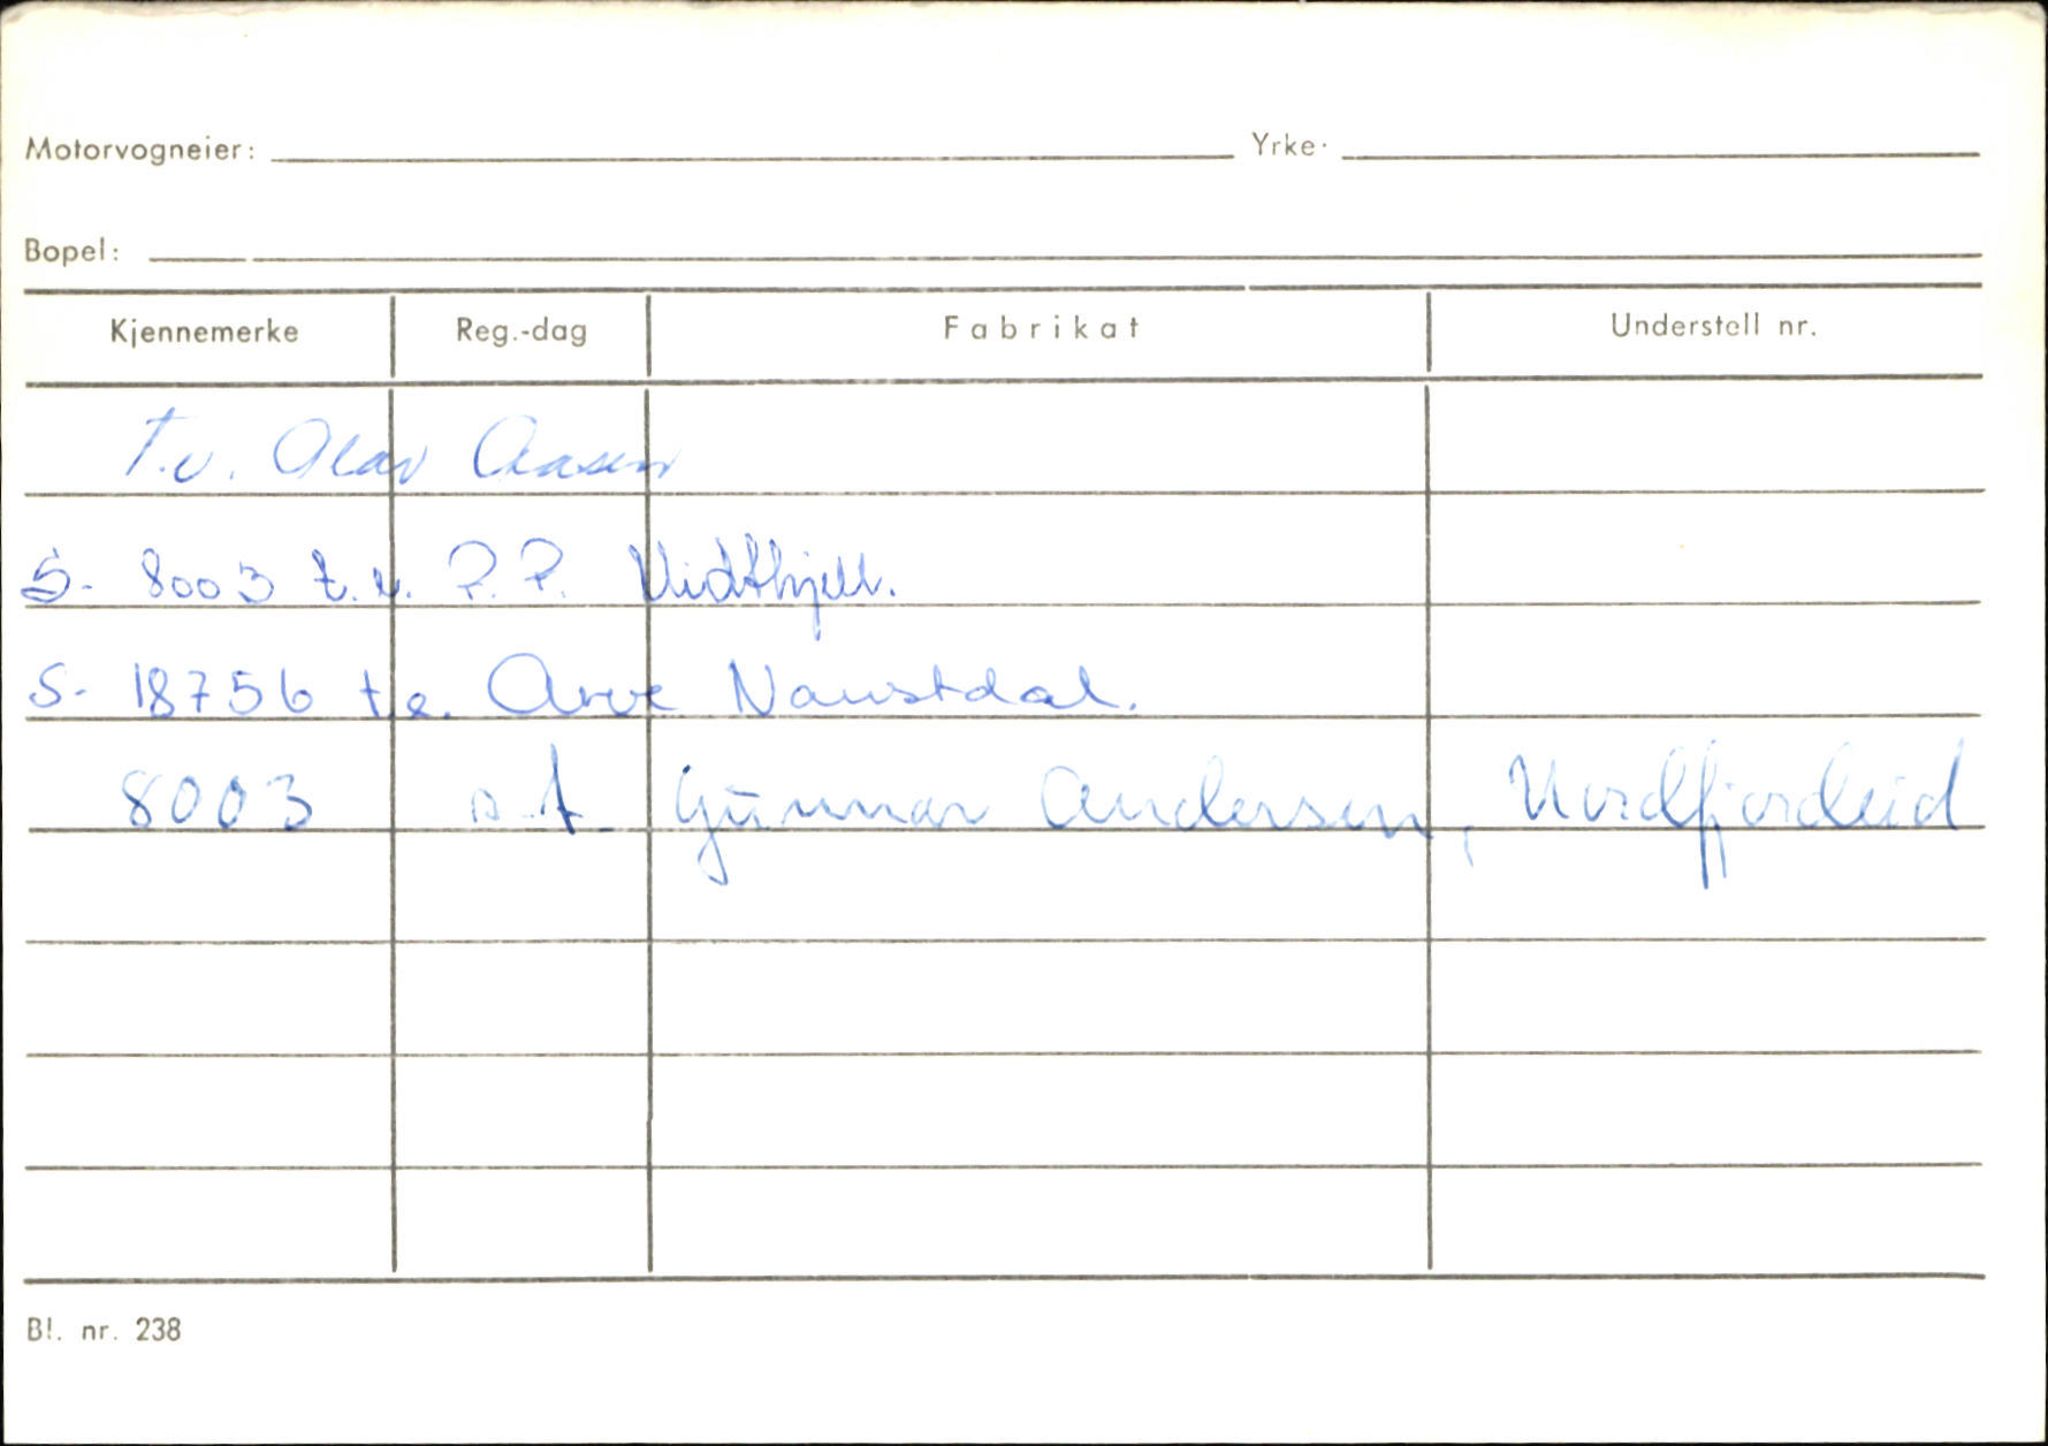 Motorvogneier: Yrke:
Bopel:
Kjennemerke Reg.-dag Fabrikat Understell nr.
T.v. Olav Aasen
S- 8003 t.v. P.P. Midthjell.
S- 18756 t.e. Arve Naustdal.
8003 Gunnar Andersen, Nordfjordeid
Bl. nr. 238